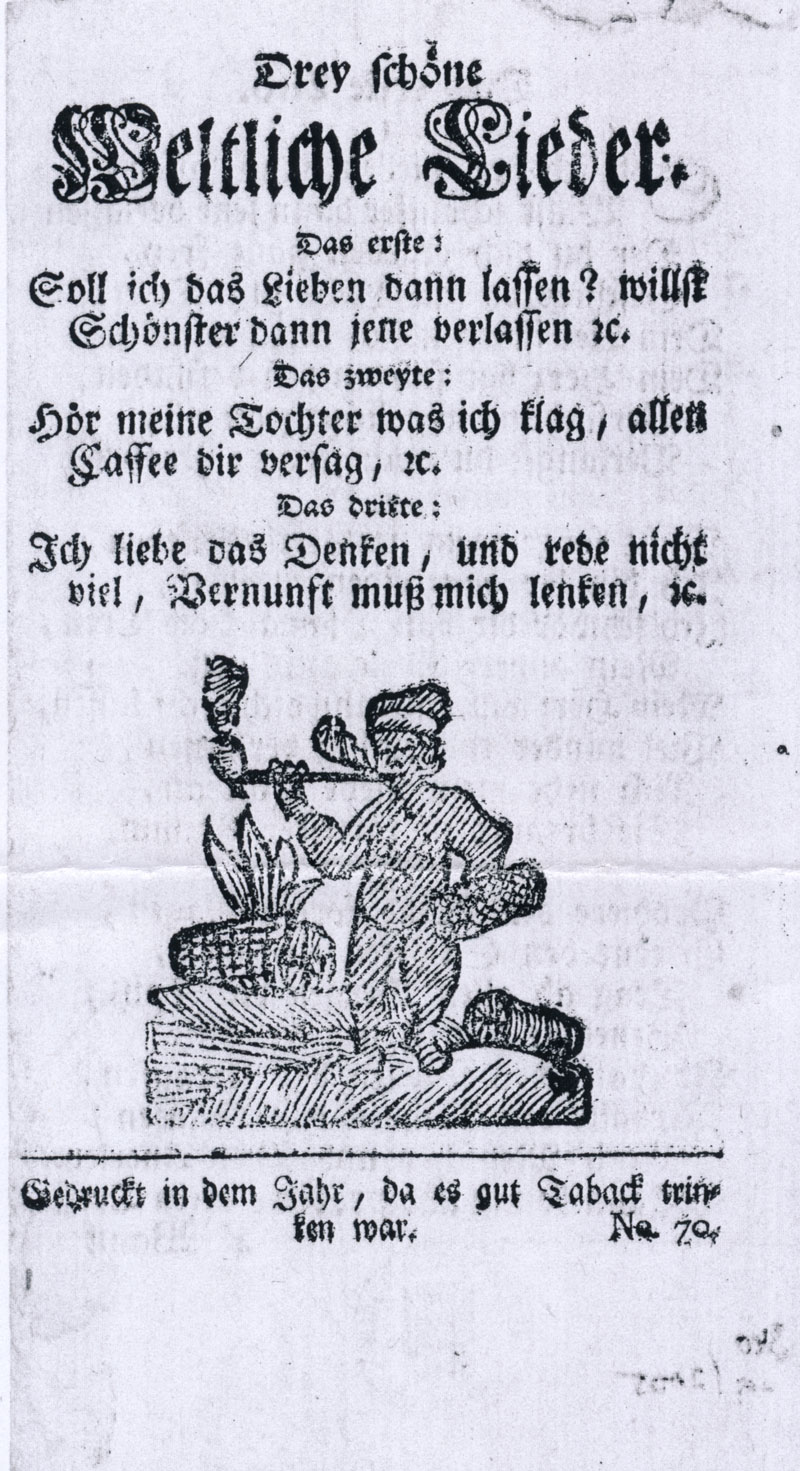 Drey schöne
Weltliche Lieder.
Das erste:
Soll ich das Lieben dann lassen? willst
Schönster dann jene verlassen ꝛc.
Das zweyte:
Hör meine Tochter was ich klag, allen
Caffee dir versag, ꝛc.
Das dritte:
Ich liebe das Denken, und rede nicht
viel, Vernunft muß mich lenken, ꝛc.
Gedruckt in dem Jahr, da es gut Taback trin-
ken war. No. 70.